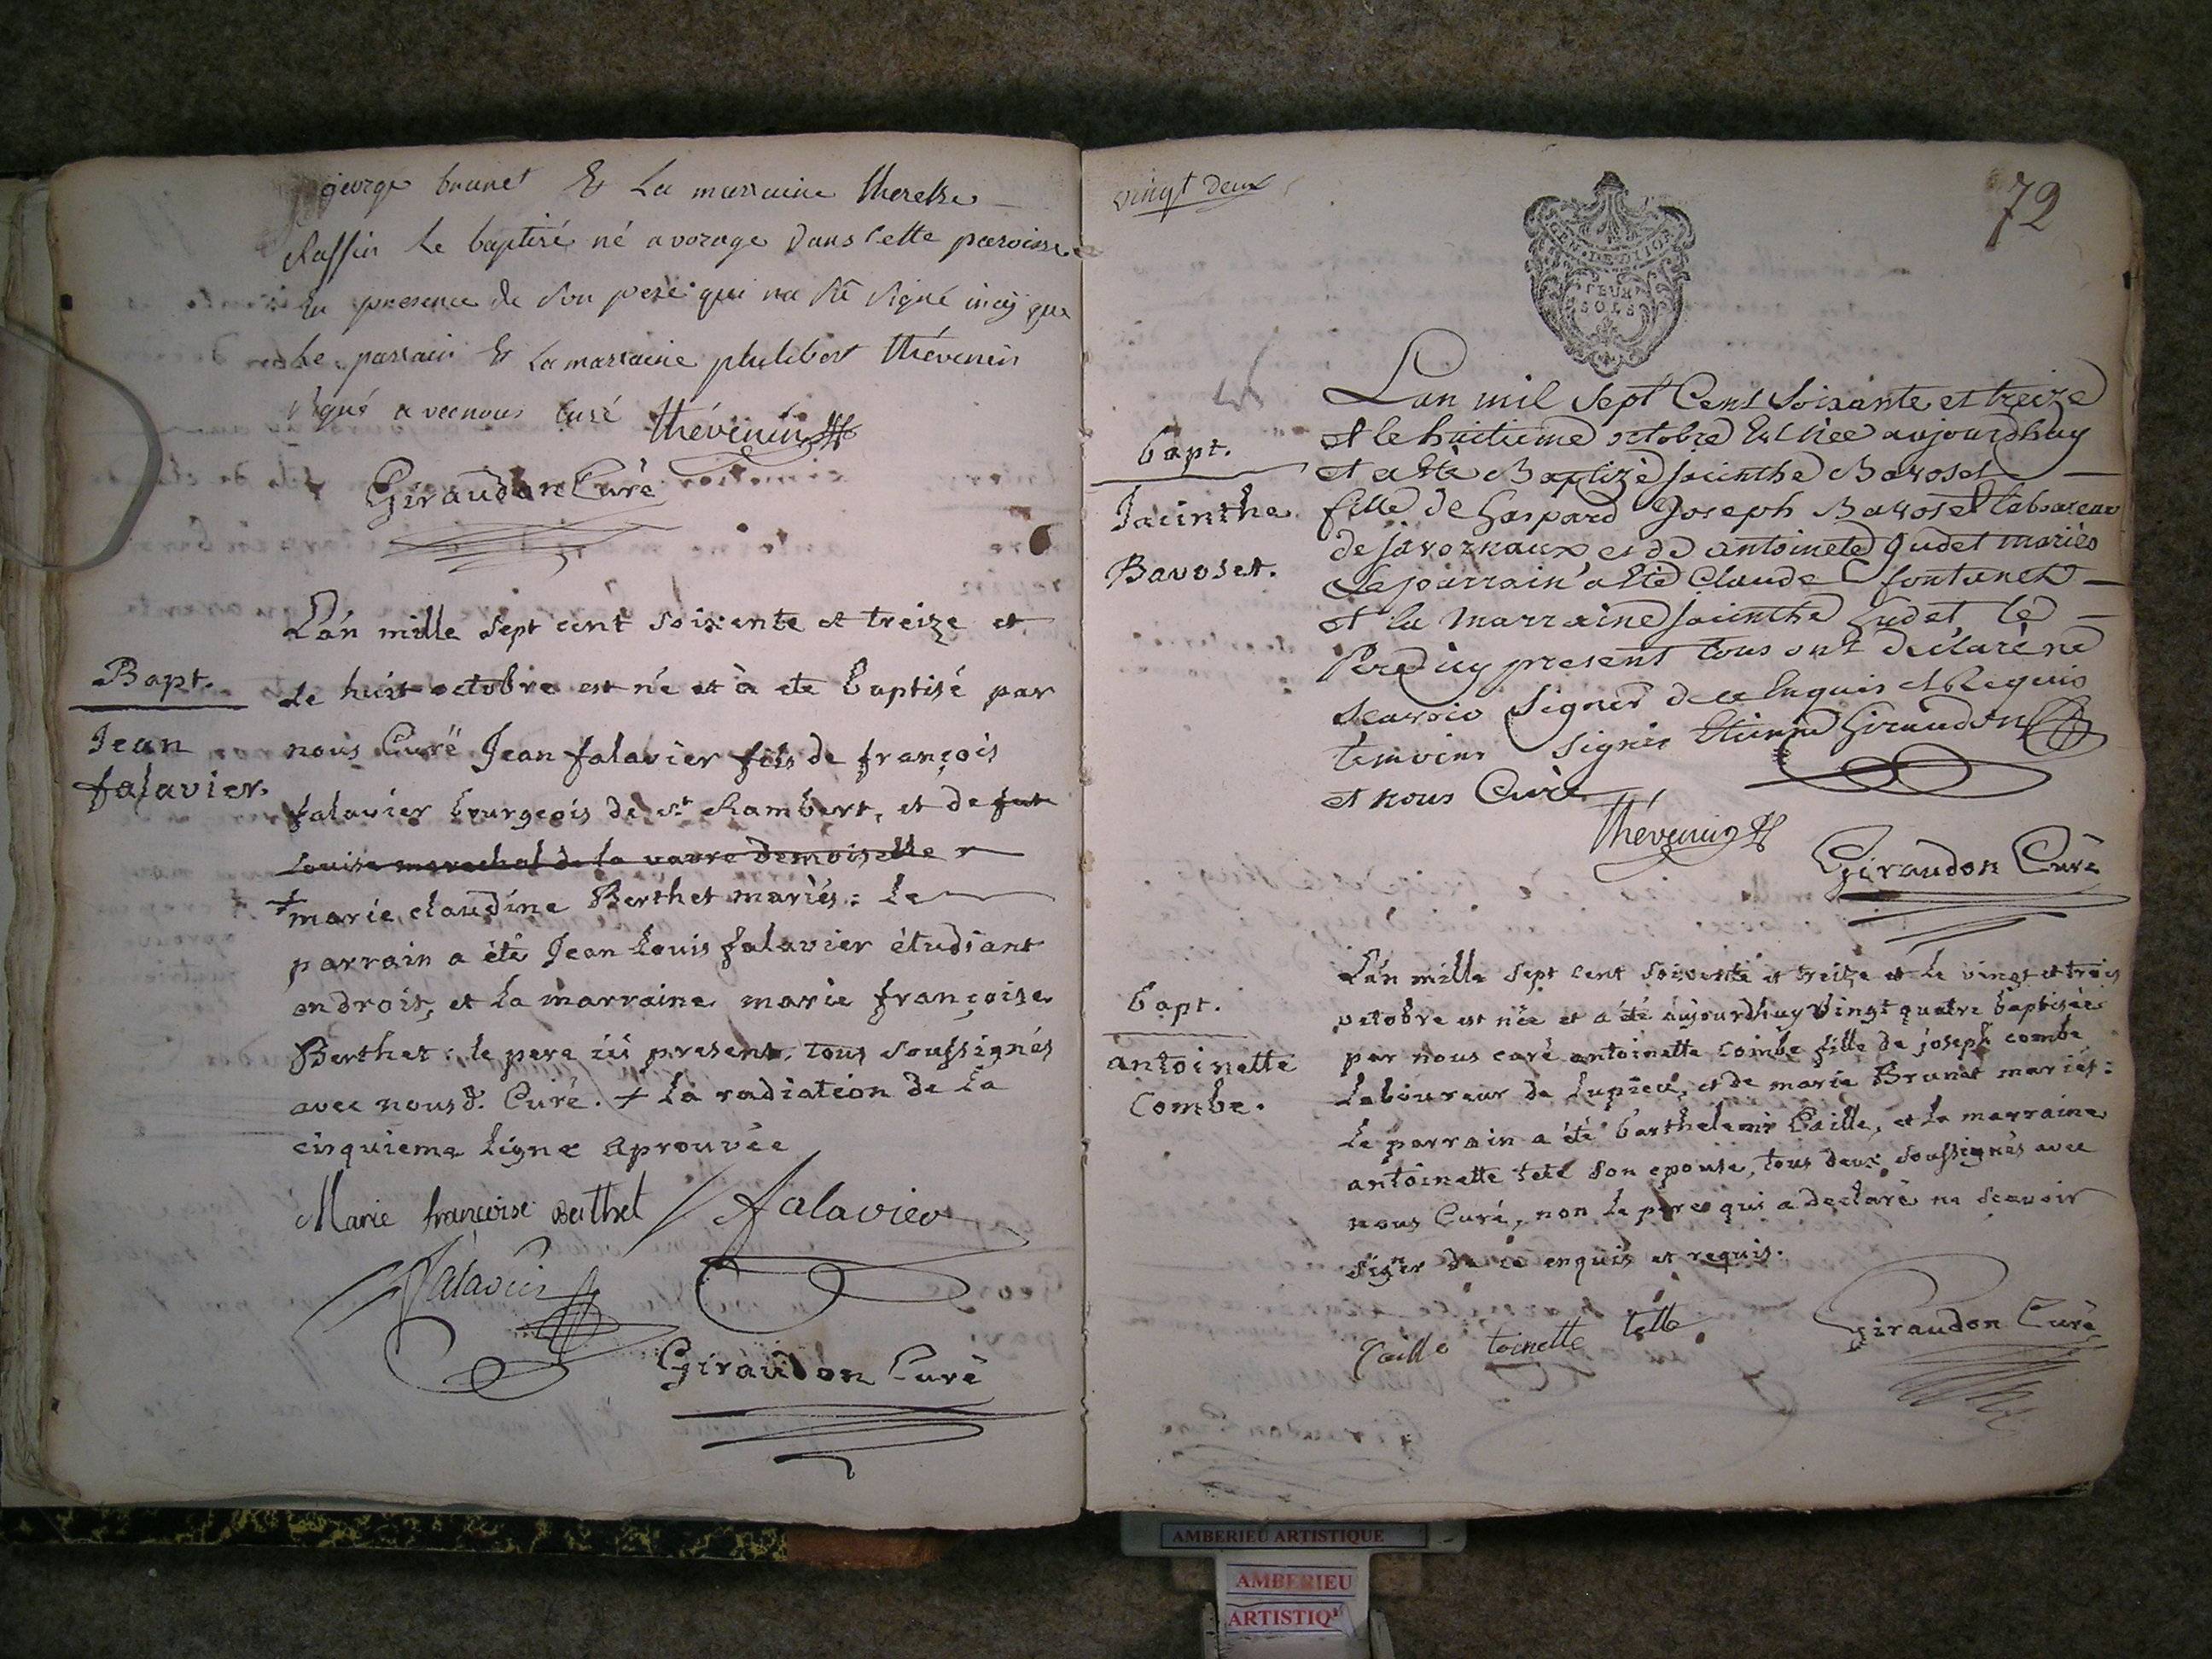 george brunet & La marraine therese
Rassin Le baptisé né a vorage dans cette paroisse
En presence de son pere qui na sû signé insy que
Le parrain & La marraine philibert thévenin
signé avec nous curé thévenin
Giraudon Curé
Bapt.
Jean
falavier.
L'án mille sept cent soixente et treize et
le huit octobre est né et à ete baptisé par
nous Curé Jean falavier fils de françois
falavier bourgeois de st Rambert, et de fut
Louise marechal de la vavre demoiselle
+ marie claudine Berthet mariés: le
parrain a été Jean Louis falavier étudiant
en droit, et la marraine marie françoise
Berthet: le pere ici present. tous soussignés
avec nousd. Curé. + La radiation de la
cinquieme ligne aprouvée
Marie françoise Berthet falavier
falavier
Giraudon Curé
vingt deux
72
GEN
DEUX
SOLS
bapt.
Jacinthe
Bavoset.
Lan mil sept Cent soixante et treize
et le huitieme octobre Est née aujourdhuy
et a Eté Baptizé jacinthe Bavoset
fille de Gaspard Joseph Bavoset laboureur
de javornaux et de antoinete Gudet mariés
Le parrain a Eté Claude fontanet
et la Marraine jacinthe Gudet le
Pere icy present tous ont declaré ne
scavoir Signer de ce Enquis et Requis
temoins Signés Etienne Giraudon
et nous Curé
thévenin
Giraudon Curé
bapt.
antoinette
Combe.
L'án mille sept cent soixente et treize et le vingt et trois
octobre est née et a été aujourdhuy vingt quatre baptisée
par nous curé antoinette combe fille de joseph combe
Laboureur de Lupieu, et de marie Brunet mariés:
Le parrain a été barthelemi Caille, et la marraine
antoinette teté son epouse, tous deux soussignés avec
nous Curé, non le pere qui a declaré ne scavoir
signer de ce enquis et requis.
Caille toinette tette
Giraudon Curé
AMBERIEU ARTISTIQUE
AMBERIEU
ARTISTIQ